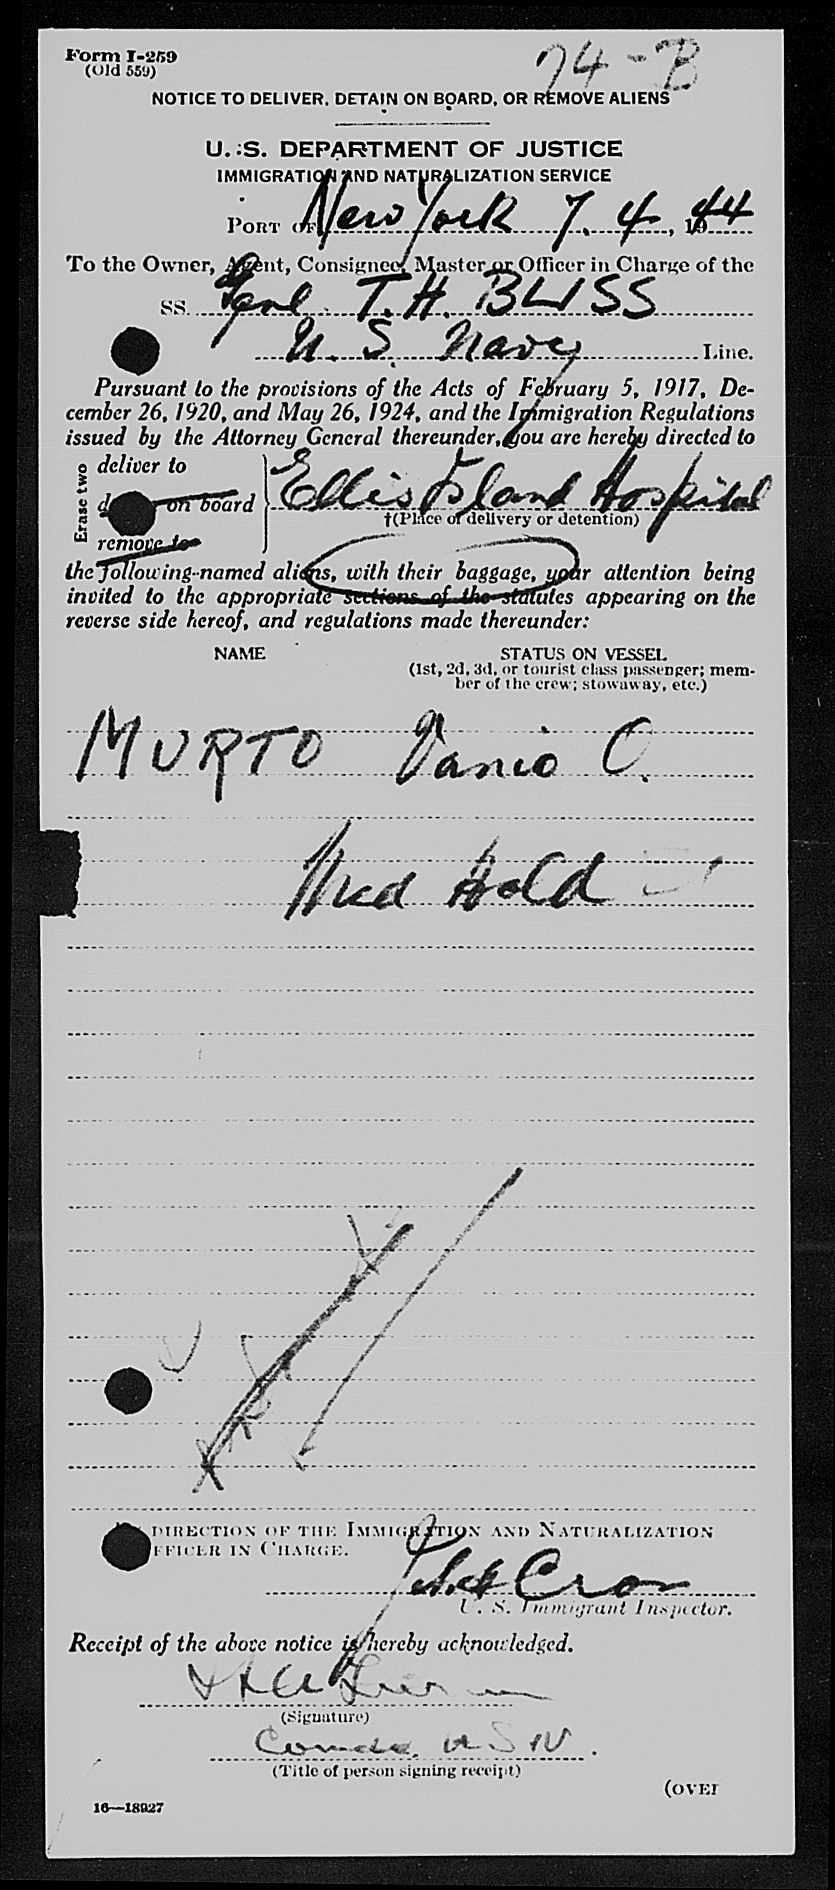 Form I-259
(Old 559)
74-B
NOTICE TO DELIVER, DETAIN ON BOARD, OR REMOVE ALIENS
U. S. DEPARTMENT OF JUSTICE
IMMIGRATION AND NATURALIZATION SERVICE
PORT OF New York 7. 4, 1944
To the Owner, Agent, Consignee, Master or Officer in Charge of the
SS. Genl. T. H. BLISS
U. S. Navy Line.
Pursuant to the provisions of the Acts of February 5, 1917, De-
cember 26, 1920, and May 26, 1924, and the Immigration Regulations
issued by the Attorney General thereunder, you are hereby directed to
Erase two
deliver to
on board
remove to
Ellis Island Hospital
†(Place of delivery or detention)
the following-named aliens, with their baggage, your attention being
invited to the appropriate sections of the statutes appearing on the
reverse side hereof, and regulations made thereunder:
NAME STATUS ON VESSEL
(1st, 2d, 3d, or tourist class passenger; mem-
ber of the crew; stowaway, etc.)
MURTO O.
Med Hold
DIRECTION OF THE IMMIGRATION AND NATURALIZATION
FFICER IN CHARGE.
U. S. Immigrant Inspector.
Receipt of the above notice is hereby acknowledged.
(Signature)
U S N.
(Title of person signing receipt)
(OVER
16—18927